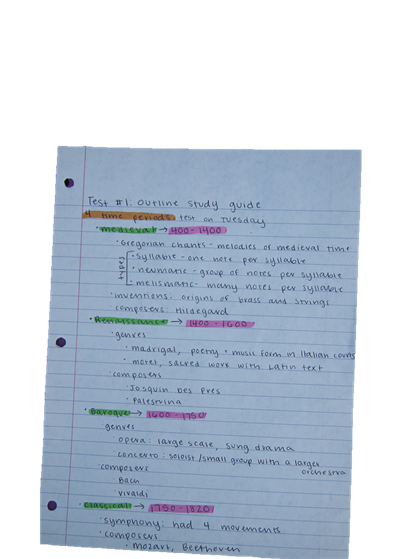 Test #1: outline study guide
4 time periods test on Tuesday
• medieval → 400 - 1400
• Gregorian chants - melodies of medieval time
types [ • syllable - one note per syllable
• neumatic - group of notes per syllable
• melismatic - many notes per syllable
• inventions: origins of brass and strings
composers: Hildegard
• Renaissance → 1400 - 1600
• genres
• madrigal, poetry + music form in Italian courts
• motet, sacred work with Latin text
• composers
• Josquin Des Pres
• Palestrina
• Baroque → 1600 - 1750
genres
• opera: large scale, sung drama
• concerto: soloist/small group with a larger
orchestra
• composers
Bach
• Vivaldi
• Classical → 1750 - 1820
• symphony: had 4 movements
• composers
• Mozart, Beethoven